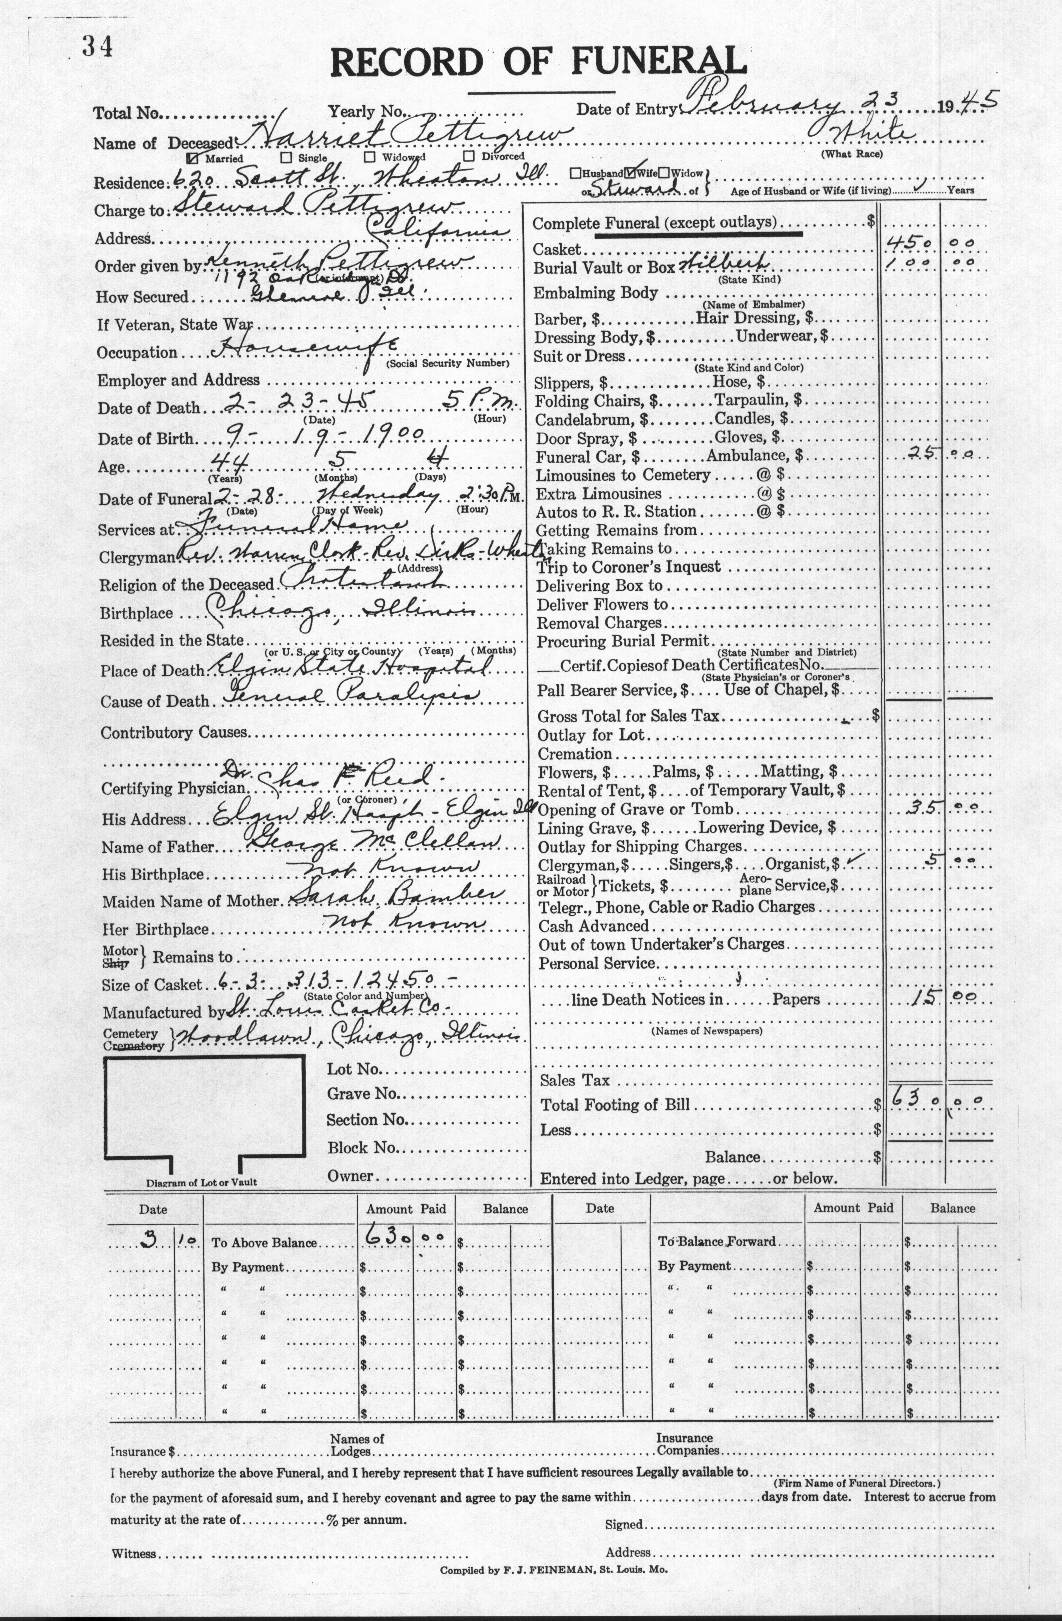 34
RECORD OF FUNERAL
Total No............... Yearly No............... Date of Entry February 23 1945
Name of Deceased Harriet Pettigrew White
☑ Married ☐ Single ☐ Widowed ☐ Divorced (What Race)
Residence: 620 Scott St., Wheaton Ill. ☐ Husband ☑ Wife ☐ Widow
or Steward of } Age of Husband or Wife (if living) Years
Charge to Steward Pettigrew
Address California
Order given by Kenneth Pettigrew
1192
How Secured Glencoe Ill.
If Veteran, State War
Occupation Housewife
(Social Security Number)
Employer and Address
Date of Death 2-23-45 5 P.M.
(Date) (Hour)
Date of Birth 9-19-1900
Age 44 5 4
(Years) (Months) (Days)
Date of Funeral 2-28- Wednesday 2:30 P.M.
(Date) (Day of Week) (Hour)
Services at Funeral Home
Clergyman Rev. Warren Clark - Rev. Dirks - Wheaton
(Address)
Religion of the Deceased Protestant
Birthplace Chicago, Illinois
Resided in the State
(or U. S. or City or County) (Years) (Months)
Place of Death Elgin State Hospital
Cause of Death General Paralysis
Contributory Causes
Certifying Physician Dr. Chas F Reed
(or Coroner)
His Address Elgin St. Hosph - Elgin Ill
Name of Father George McClellan
His Birthplace not Known
Maiden Name of Mother Sarah Bamber
Her Birthplace not Known
Motor
Ship } Remains to
Size of Casket 6-3- 313-12450-
(State Color and Number)
Manufactured by St. Louis Casket Co-
Cemetery
Crematory } Woodlawn, Chicago, Illinois
Lot No.
Grave No.
Section No.
Block No.
Owner
Diagram of Lot or Vault
Complete Funeral (except outlays) $
Casket 450 00
Burial Vault or Box Wilbert 100 00
(State Kind)
Embalming Body
(Name of Embalmer)
Barber, $ Hair Dressing, $
Dressing Body, $ Underwear, $
Suit or Dress
(State Kind and Color)
Slippers, $ Hose, $
Folding Chairs, $ Tarpaulin, $
Candelabrum, $ Candles, $
Door Spray, $ Gloves, $
Funeral Car, $ Ambulance, $ 25 00
Limousines to Cemetery @ $
Extra Limousines @ $
Autos to R. R. Station @ $
Getting Remains from
Taking Remains to
Trip to Coroner's Inquest
Delivering Box to
Deliver Flowers to
Removal Charges
Procuring Burial Permit
(State Number and District)
Certif. Copies of Death Certificates No.
(State Physician's or Coroner's
Pall Bearer Service, $ Use of Chapel, $
Gross Total for Sales Tax $
Outlay for Lot
Cremation
Flowers, $ Palms, $ Matting, $
Rental of Tent, $ of Temporary Vault, $
Opening of Grave or Tomb 35 00
Lining Grave, $ Lowering Device, $
Outlay for Shipping Charges
Clergyman, $ Singers, $ Organist, $ ✓ 5 00
Railroad
or Motor } Tickets, $ Aero-
plane Service, $
Telegr., Phone, Cable or Radio Charges
Cash Advanced
Out of town Undertaker's Charges
Personal Service
line Death Notices in Papers 15 00
(Names of Newspapers)
Sales Tax
Total Footing of Bill $ 630 00
Less $
Balance $
Entered into Ledger, page......or below.
Date Amount Paid Balance Date Amount Paid Balance
3 10 To Above Balance 630 00 $ To Balance Forward $
By Payment $ $ By Payment $ $
" " $ $ " " $ $
" " $ $ " " $ $
" " $ $ " " $ $
" " $ $ " " $ $
" " $ $ " " $ $
" " $ $ " " $ $
Insurance $ Names of
Lodges Insurance
Companies
I hereby authorize the above Funeral, and I hereby represent that I have sufficient resources Legally available to
(Firm Name of Funeral Directors.)
for the payment of aforesaid sum, and I hereby covenant and agree to pay the same within days from date. Interest to accrue from
maturity at the rate of % per annum.
Signed
Witness Address
Compiled by F. J. FEINEMAN, St. Louis. Mo.